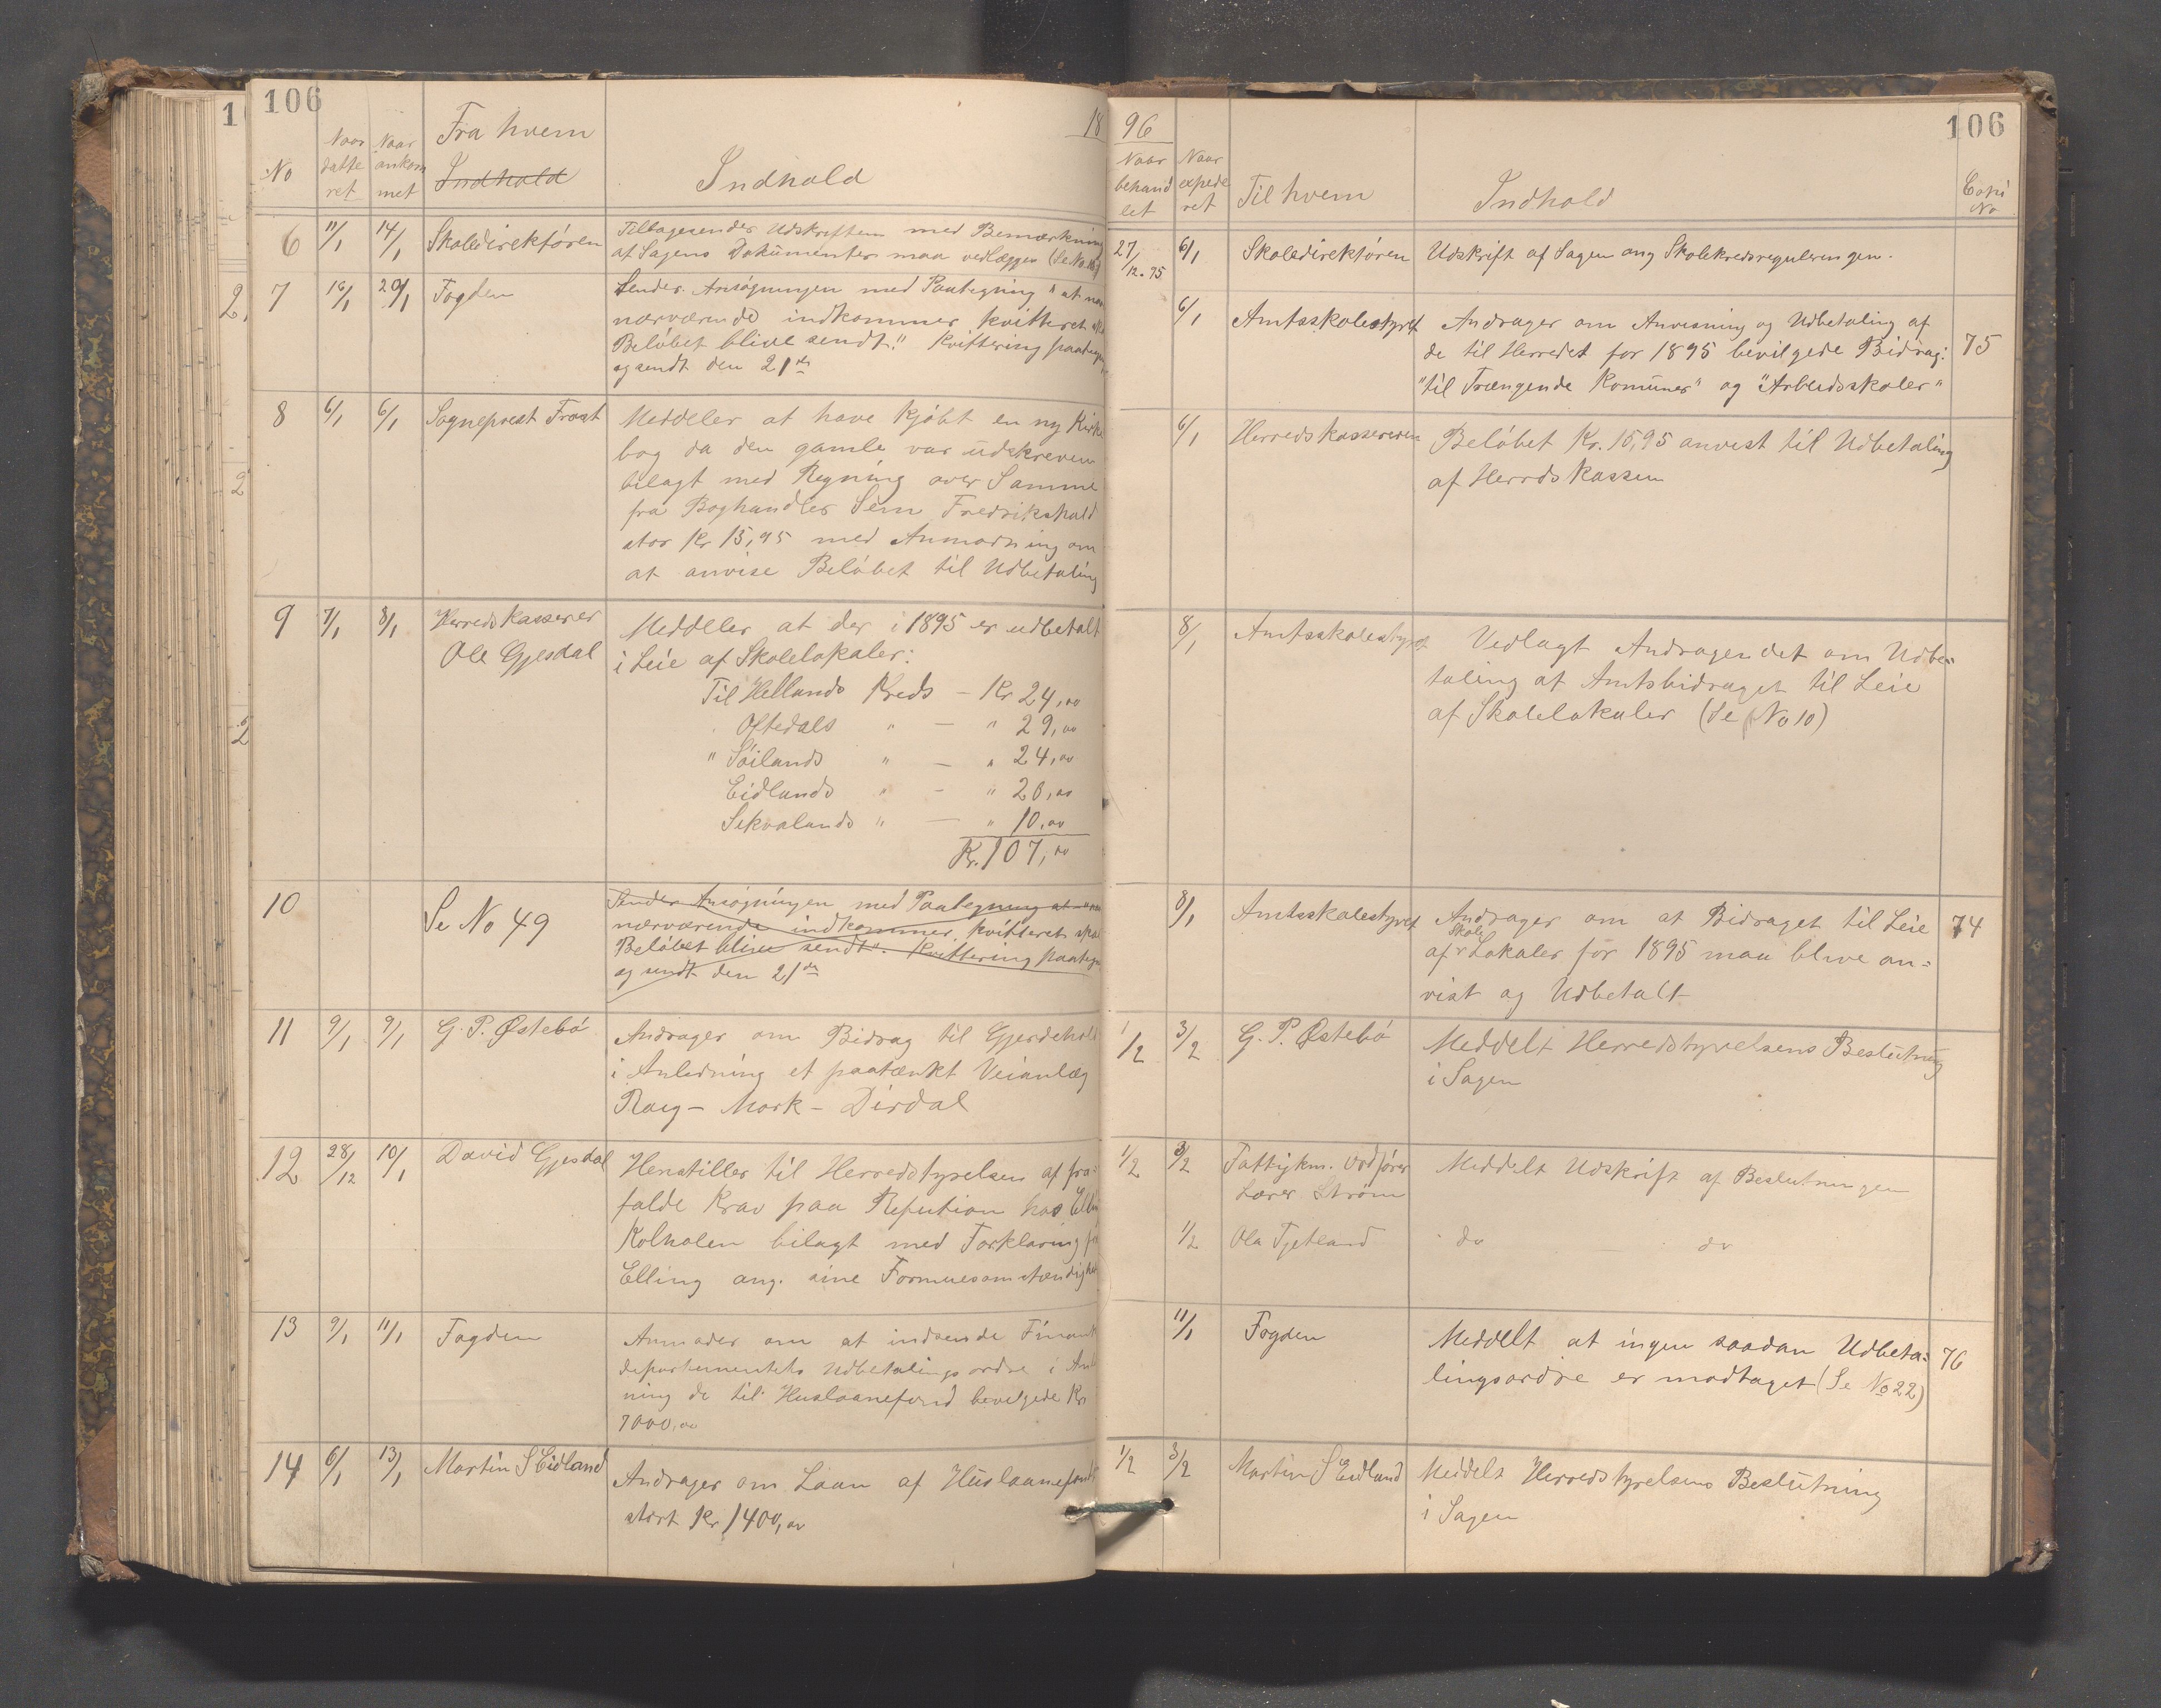 106
18
No
Naar datte ret
Naar ankom met
Fra hvem
Indhold
Indhold
6 11/1 14/1 Skoledirektøren
Tilbagesender Udskriften med Bemærkning
af Sagens Dokumenter maa vedlægges
7 16/1 20/1 Fogden
Sender Ansøgningen med Paategning "at
nærværende indkommer kvitteret
Beløbet blive sendt." Kvittering
og sendt den 21de
8 6/1 6/1 Sogneprest Frost
Meddeler at have kjøbt en ny Kirke
bog da den gamle var udskreven
bilagt med Regning over Samme
fra Boghandler Sem Fredrikshald
stor Kr 15,95 med Anmodning om
at anvise Beløbet til Udbetaling
9 7/1 8/1 Herredskasserer
Ole Gjesdal
Meddeler at der i 1895 er udbetalt
i Leie af Skolelokaler:
Til Hellands Kreds – Kr 24,00
Oftedals " – " 29,00
" Søilands " – " 24,00
Eidlands " – " 20,00
Sekvalands " – " 10,00
Kr. 107,00
10 Se No 49
Sender Ansøgningen med Paategning at
nærværende indkommer kvitteret
Beløbet blive sendt". Kvittering
og sendt den 21de
11 9/1 9/1 G. P. Østebø
Andrager om Bidrag til Gjerdehold
i Anledning et paatænkt Veianlæg
– Mork – Dirdal
12 28/12 10/1 David Gjesdal
Henstiller til Herredstyrelsen at fra=
falde Krav paa Refution hos
Kolholen bilagt med Forklaring
Elling ang. sine
13 9/1 11/1 Fogden
Anmoder om at indsende
departementets Udbetalingsordre i
ning de til Huslaanefond bevilgede Kr
7000,00
14 6/1 13/1 Martin S Eidland
Andrager om Laan af Huslaanefond
stort Kr 1400,00
96
106
Naar behand let
Naar expede ret
Til hvem
Indhold
Copi No
27/12.95 6/1 Skoledirektøren Udskrift af Sagen ang Skolekredsreguleringen.
6/1 Amtsskolestyret Andrager om Anvisning og Udbetaling af
de til Herredet for 1895 bevilgede Bidrag: 75
"til Trængende Komuner" og "Arbeidsskoler"
6/1 Herredskassereren Beløbet Kr. 15,95 anvist til Udbetaling
af Herredskassen
8/1 Amtsskolestyret Vedlagt Andragendet om Udbe=
taling af Amtsbidraget til Leie
af Skolelokaler (Se No 10)
8/1 Amtsskolestyret Andrager om at Bidraget til Leie 74
af Skole Lokaler for 1895 maa blive an=
vist og Udbetalt
1/2 3/2 G. P. Østebø Meddelt Herredstyrelsens Beslutning
i Sagen
1/2 3/2 Fattigkm. Ordfører Meddelt Udskrift af Beslutningen
Lærer Strøm
1/2 Ola Tjetland do do
11/1 Fogden Meddelt at ingen saadan Udbeta= 76
lingsordre er modtaget (Se No 22)
1/2 3/2 Martin S Eidland Meddelt Herredstyrelsens Beslutning
i Sagen